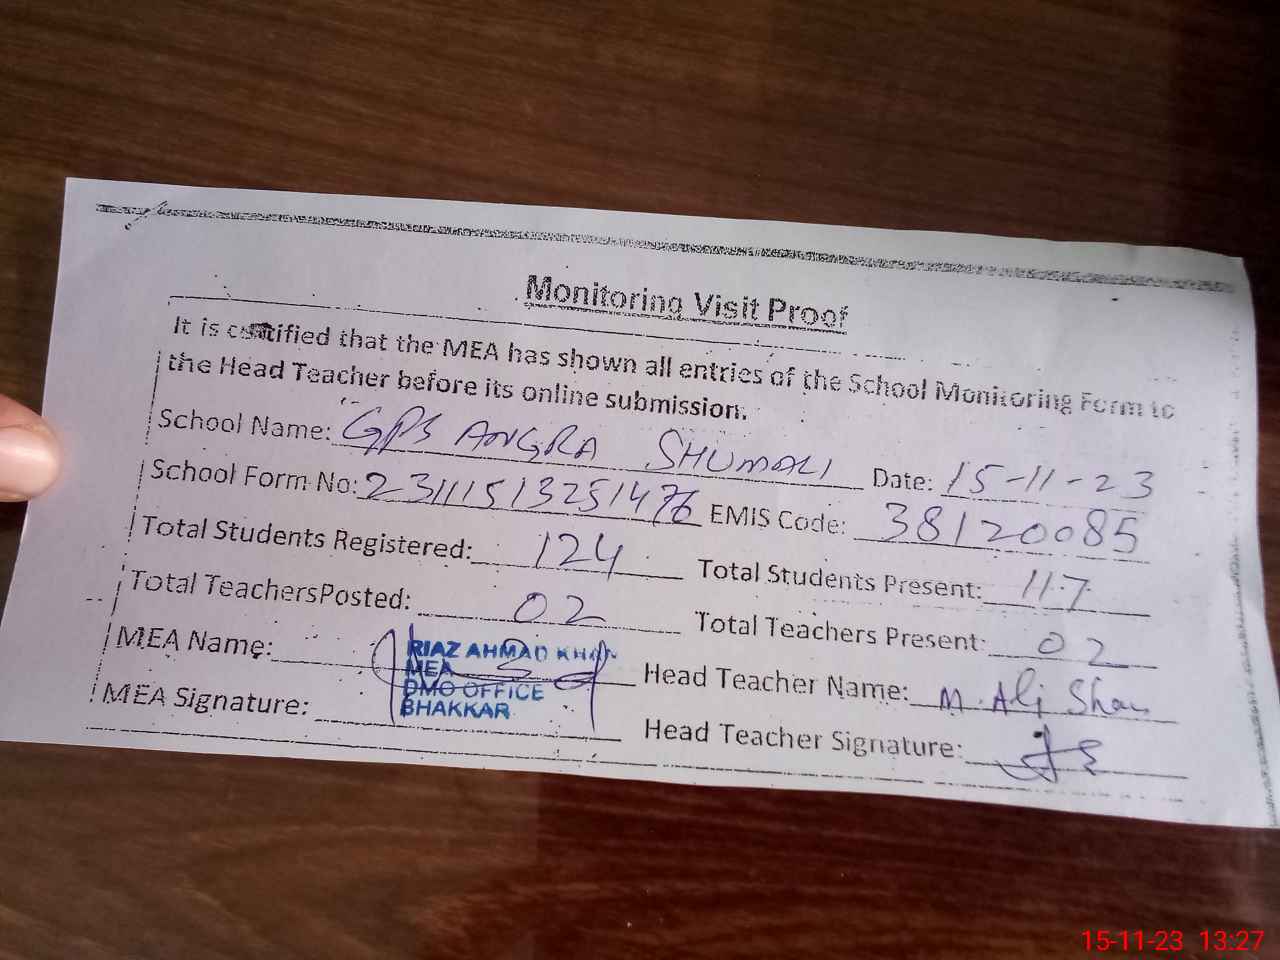 Monitoring Visit Proof
It is certified that the MEA has shown all entries of the School Monitoring Form to
the Head Teacher before its online submission.
School Name: GPS ANGRA SHUMALI Date: 15-11-23
School Form No: 23111513251476 EMIS Code: 38120085
Total Students Registered: 124 Total Students Present: 117
Total TeachersPosted: 02 Total Teachers Present: 02
MEA Name: RIAZ AHMAD KHAN Head Teacher Name: M. Ali Shah
MEA
DMO OFFICE
BHAKKAR
MEA Signature: Head Teacher Signature:
15-11-23 13:27